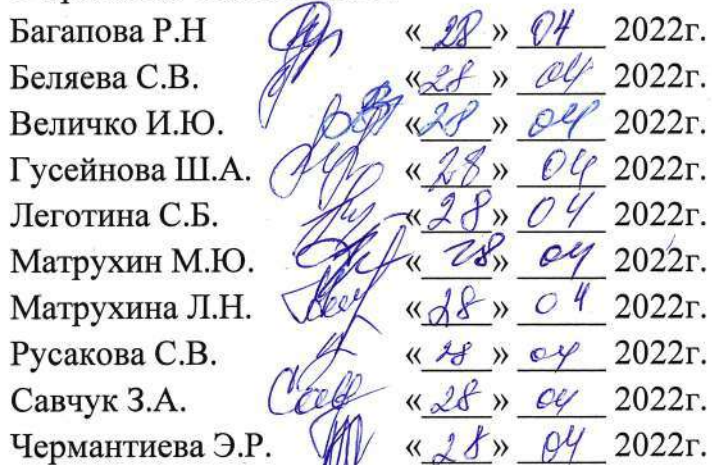 Багапова Р.Н « 28 » 04 2022г.
Беляева С.В. « 28 » 04 2022г.
Величко И.Ю. « 28 » 04 2022г.
Гусейнова Ш.А. « 28 » 04 2022г.
Леготина С.Б. « 28 » 04 2022г.
Матрухин М.Ю. « 28 » 04 2022г.
Матрухина Л.Н. « 28 » 04 2022г.
Русакова С.В. « 28 » 04 2022г.
Савчук З.А. « 28 » 04 2022г.
Чермантиева Э.Р. « 28 » 04 2022г.